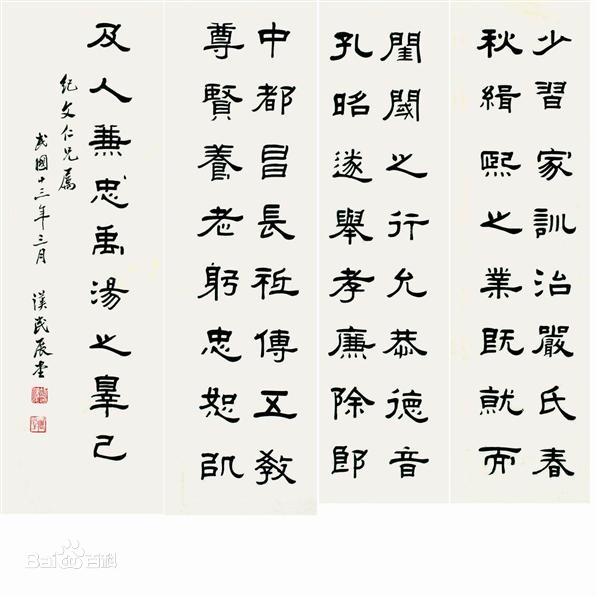 少習家訓治嚴氏春
秋緝熙之業既就而
閨閾之行允恭德音
孔昭遂舉孝廉除郎
中都昌長祗傳五教
尊賢養老躬忠恕㠯
及人兼忠禹湯之辠己
紀文仁兄屬
民國十三年三月 漢民展堂
Bai百科